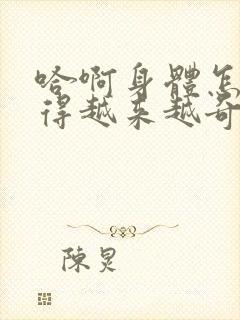 哈啊身體怎
得越来越奇
陳炅